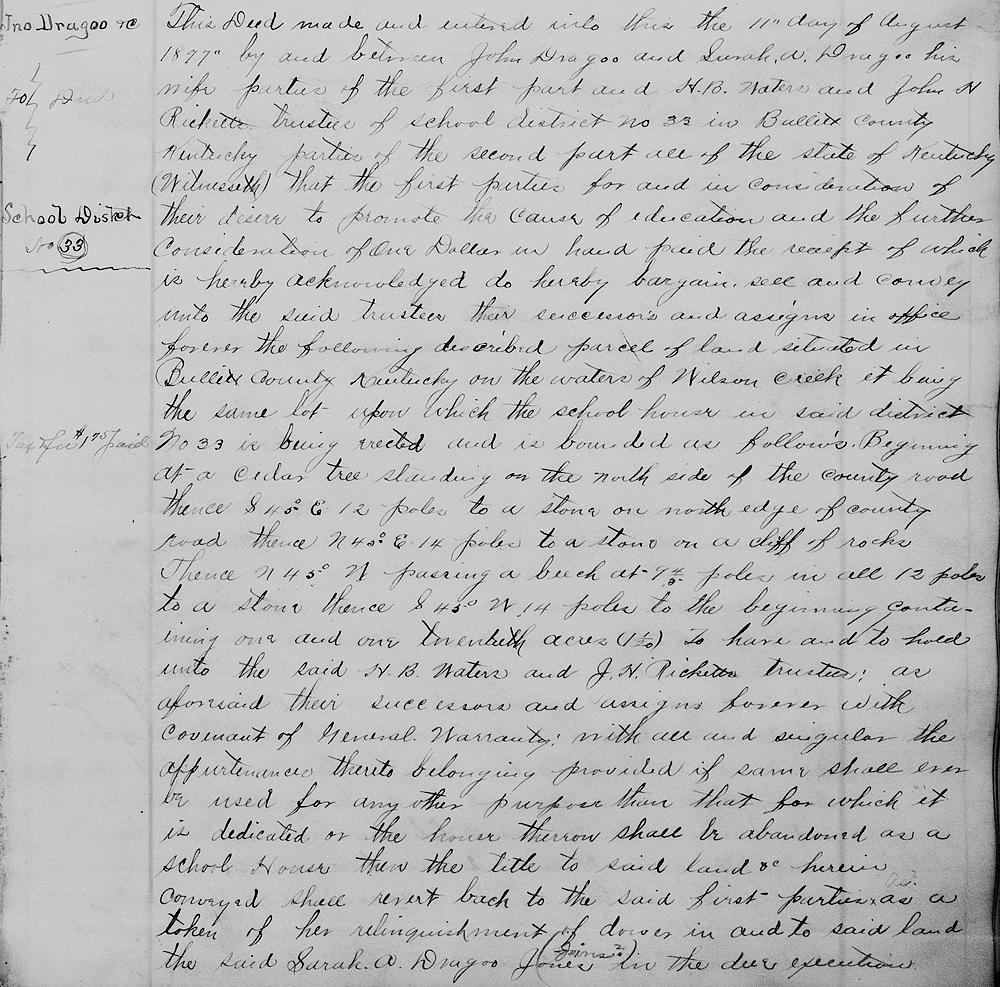 Jno Dragoo &c
To Deed
School Distct
No 33
Tax for $1.75 paid
This Deed made and entered into this the 11" day of August
1897" by and between John Dragoo and Sarah. A. Dragoo his
wife parties of the first part and H. B. Waters and John H
Ricketts trustees of school district no 33 in Bullitt County
Kentucky parties of the second part all of the state of Kentucky
(Witnesseth) that the first parties for and in consideration of
their desire to promote the cause of education and the further
Consideration of One Dollar in hand paid the receipt of which
is hereby acknowledged do hereby bargain. sell and convey
unto the said trustees their successors and assigns in office
forever the following described parcel of land situated in
Bullitt County Kentucky on the waters of Wilson Creek it being
the same lot upon which the school house in said district
No 33 is being erected and is bounded as follows. Beginning
at a Cedar tree standing on the north side of the county road
thence S 45° E 12 poles to a stone on north edge of county
road thence N 45° E 14 poles to a stone on a cliff of rocks
Thence N 45° W passing a beech at 9 4/5 poles in all 12 poles
to a stone thence S 45° W 14 poles to the beginning conta-
ining one and one twentieth acres (1 1/20) To have and to hold
unto the said H. B. Waters and J. H. Ricketts trustees; as
aforesaid their successors and assigns forever with
Covenant of General. Warranty; with all and singular the
appurtenances thereto belonging provided if same shall ever
be used for any other purpose than that for which it
is dedicated or the house thereon shall be abandoned as a
school House then the title to said land &c herein
conveyed shall revert back to the said first parties as a
token of her relinquishment of dower in and to said land
the said Sarah. A. Dragoo Jones (Joins?) in the due execution